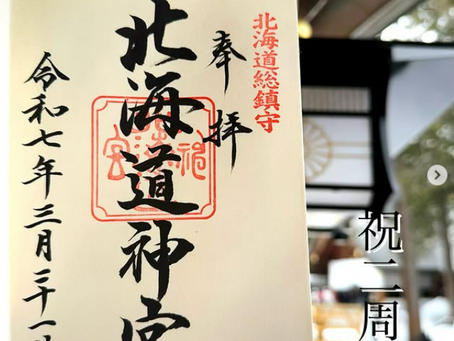 北海道総鎮守
奉拝
北海道神宮
令和七年三月三十一
祝二周